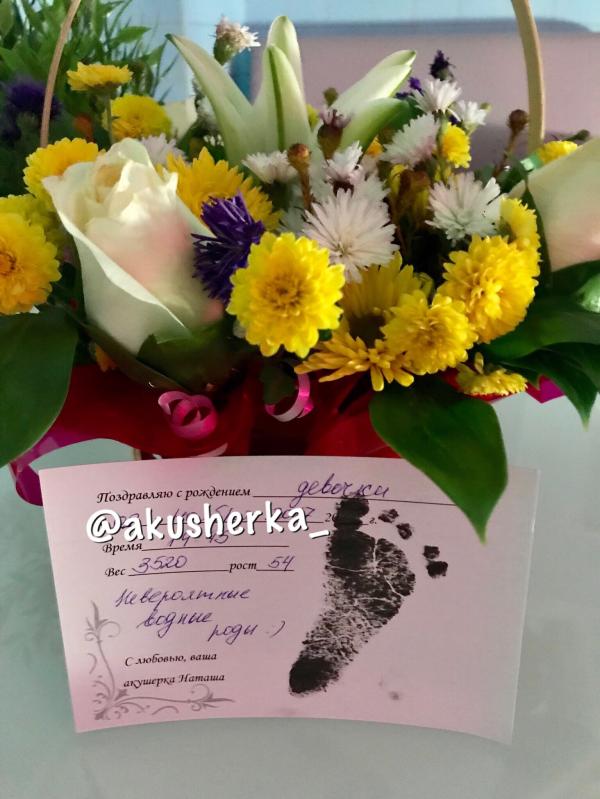 Поздравляю с рождением девочки
@akusherka_
г.
Время
Вес 3520 рост 54
Невероятные
водные
роды :)
С любовью, ваша
акушерка Наташа